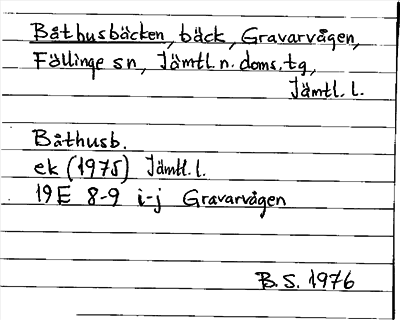 Båthusbäcken, bäck, Gravarvågen,
Föllinge sn, Jämtl. n. doms. tg,
Jämtl. l.
Båthusb.
ek (1975) Jämtl. l.
19E 8-9 i-j Gravarvågen
B. S. 1976